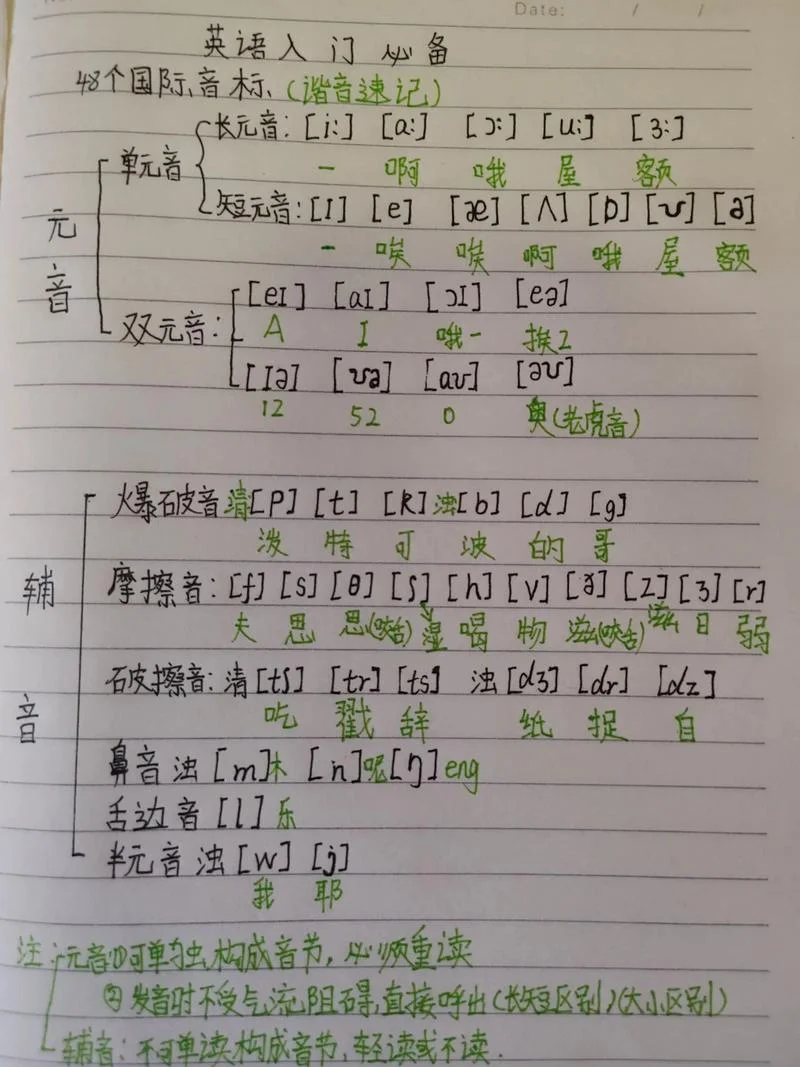 Date: / /
英语入门必备
48个国际音标(谐音速记)
长元音: [i:] [a:] [ɔ:] [u:] [ɜ:]
单元音 一 啊 哦 屋 额
短元音: [I] [e] [æ] [ʌ] [ɒ] [ʊ] [ə]
元音 一 唉 唉 啊 哦 屋 额
[eI] [aI] [ɔI] [eə]
双元音: A I 哦一 挨2
[Iə] [ʊə] [aʊ] [əʊ]
12 52 0 奥(老虎音)
爆破音 清[p] [t] [k] 浊[b] [d] [g]
泼 特 可 波 的 哥
辅音 摩擦音: [f] [s] [θ] [ʃ] [h] [v] [ð] [z] [ʒ] [r]
夫 思 思(咬舌) 湿 喝 物 滋(咬舌) 滋 日 弱
破擦音: 清[tʃ] [tr] [ts] 浊[dʒ] [dr] [dz]
吃 戳 辞 纸 捉 自
鼻音 浊[m]木 [n]呢 [ŋ]eng
舌边音 [l] 乐
半元音 浊[w] [j]
我 耶
注: 元音①可单独构成音节, 必须重读
②发音时不受气流阻碍,直接呼出(长短区别)(大小区别)
辅音: 不可单读构成音节, 轻读或不读.